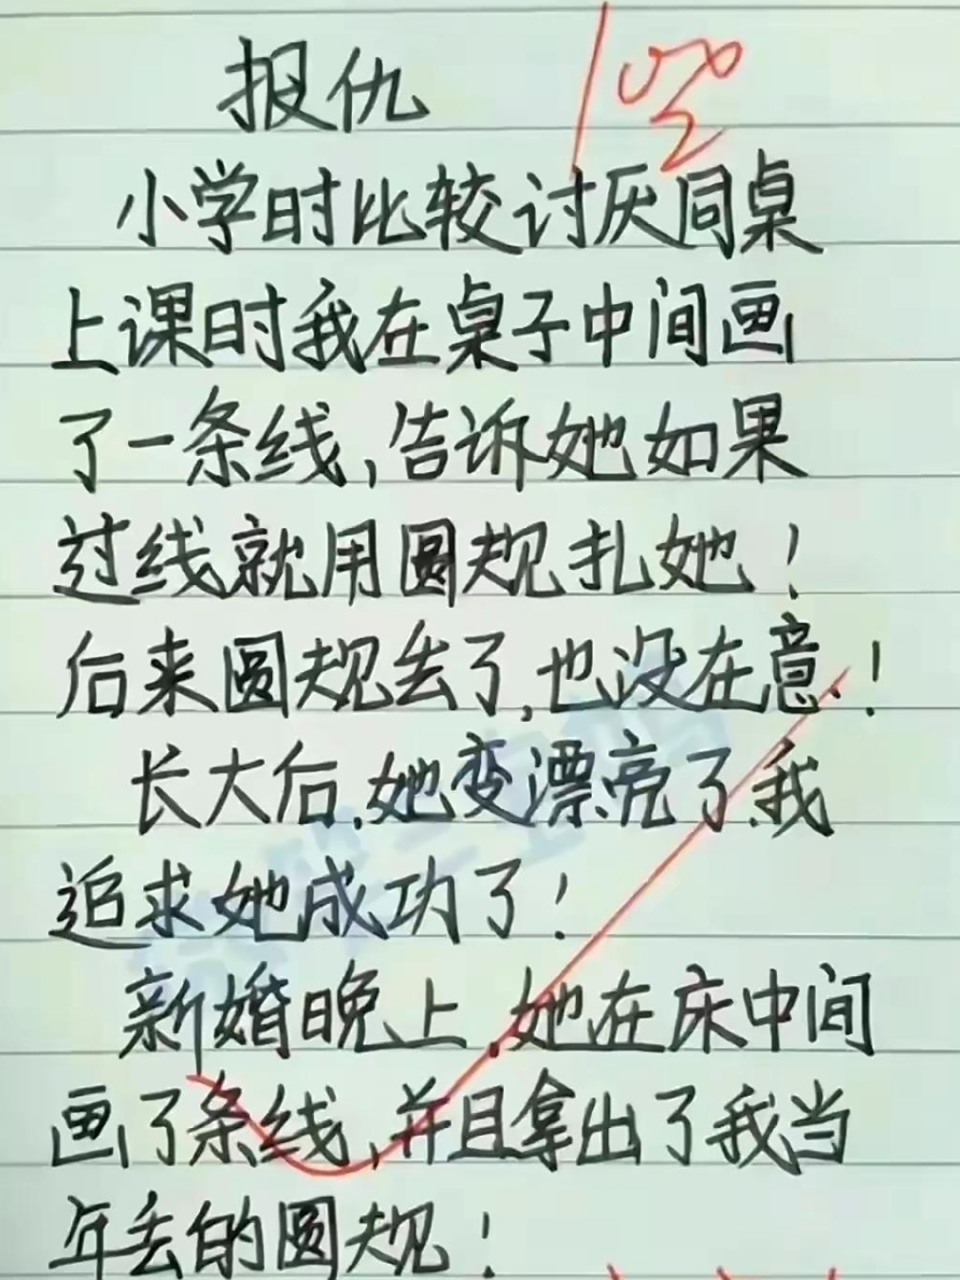 报仇
100
小学时比较讨厌同桌
上课时我在桌子中间画
了一条线,告诉她如果
过线就用圆规扎她!
后来圆规丢了,也没在意.!
长大后,她变漂亮了,我
追求她成功了!
新婚晚上,她在床中间
画了条线,并且拿出了我当
年丢的圆规!